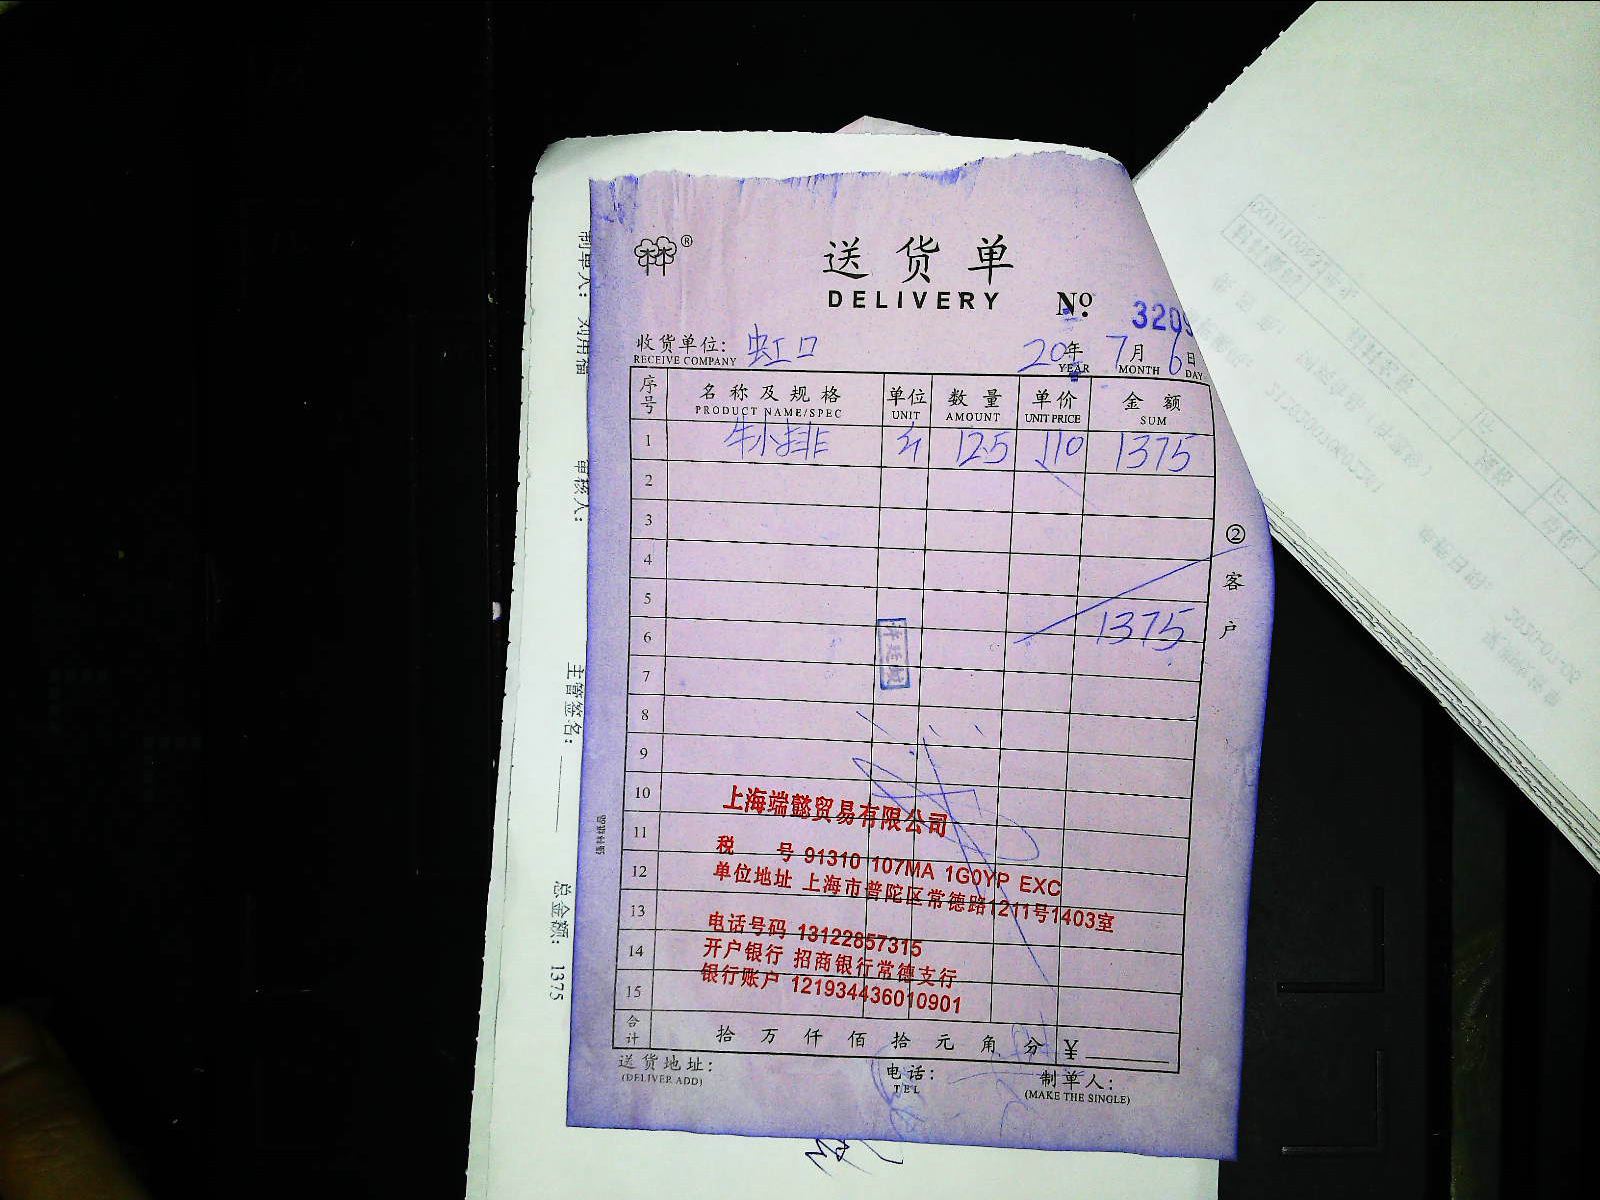 送货单
DELIVERY
№ 320
收货单位: 虹口 20年 7月 6日
RECEIVE COMPANY YEAR MONTH DAY
序号 名称及规格 单位 数量 单价 金额
PRODUCT NAME/SPEC UNIT AMOUNT UNIT PRICE SUM
1 牛小排 斤 12.5 110 1375
2
3
4
5
6 1375
7
8
9
10
11
12
13
14
15
②客户
上海端懿贸易有限公司
税 号 91310 107MA 1G0YP EXC
单位地址 上海市普陀区常德路1211号1403室
电话号码 13122857315
开户银行 招商银行常德支行
银行账户 121934436010901
合计 拾 万 仟 佰 拾 元 角 分 ¥
送货地址: 电话: 制单人:
(DELIVER ADD) TEL (MAKE THE SINGLE)
制单人:
审核人:
主管签名:
总金额: 1375